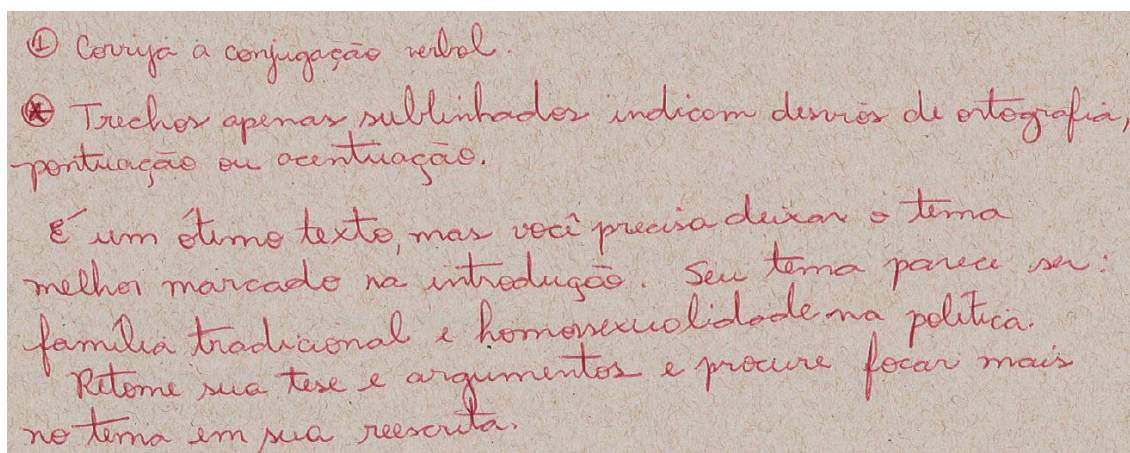 ① Corrija a conjugação verbal.
* Trechos apenas sublinhados indicam desvios de ortografia,
pontuação ou acentuação.
É um ótimo texto, mas você precisa deixar o tema
melhor marcado na introdução. Seu tema parece ser:
família tradicional e homossexualidade na política.
Retome sua tese e argumentos e procure focar mais
no tema em sua reescrita.